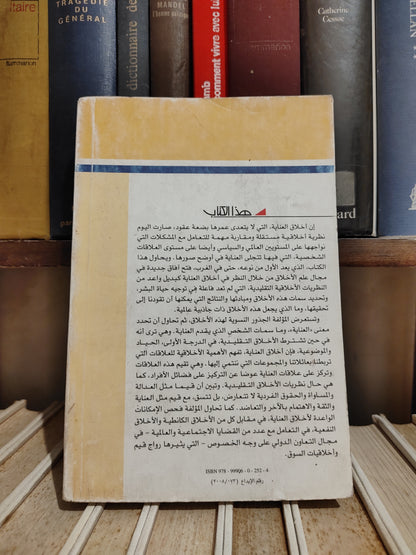 ittéraire
flammarion
TRAGÉDIE
DU
GÉNÉRAL
dictionnaire de
MANDEL
comment vivre avec lui
Catherine
Cessac
هذا الكتاب
إن أخلاق العناية، التي لا يتعدى عمرها بضعة عقود، صارت اليوم
نظرية أخلاقية مستقلة ومقاربة مهمة للتعامل مع المشكلات التي
نواجهها على المستويين العالمي والسياسي وأيضا على مستوى العلاقات
الشخصية، التي فيها تتجلى العناية في أوضح صورها. ويحاول هذا
الكتاب، الذي يعد الأول من نوعه، حتى في الغرب، فتح آفاق جديدة في
مجال علم الأخلاق من خلال النظر في أخلاق العناية كبديل واعد من
النظريات الأخلاقية التقليدية، التي لم تعد فاعلة في توجيه حياة البشر،
وتحديد سمات هذه الأخلاق ومبادئها والنتائج التي يمكنها أن تقودنا إلى
تحقيقها، وما الذي يجعل هذه الأخلاق ذات جاذبية عالمية.
وتستعرض المؤلفة الجذور النسوية لهذه الأخلاق، ثم تحاول أن تحدد
معنى «العناية»، وما سمات الشخص الذي يقدم العناية. وهي ترى أنه
في حين تشترط الأخلاق التقليدية، في الدرجة الأولى، الحياد
والموضوعية، فإن أخلاق العناية، تفهم الأهمية الأخلاقية للعلاقات التي
تربطنا بعائلاتنا والمجموعات التي ننتمي إليها. وهي تقيم هذه العلاقات
وتركز على علاقات العناية عوضا عن التركيز على فضائل الأفراد، كما
هي حال نظريات الأخلاق التقليدية. وتبين أن قيما مثل العدالة
والمساواة والحقوق الفردية لا تتعارض، بل تتسق، مع قيم مثل العناية
والثقة والاهتمام بالآخر والتعاضد. كما تحاول المؤلفة فحص الإمكانات
الواعدة لأخلاق العناية، في مقابل كل من الأخلاق الكانطية والأخلاق
النفعية، في التعامل مع عدد من القضايا الاجتماعية والعالمية - في
مجال التعاون الدولي على وجه الخصوص - التي يثيرها رواج قيم
وأخلاقيات السوق.
ISBN 978 - 99906 - 0 - 252 - 4
رقم الإيداع (٢٠٠٨/٠٢٣)